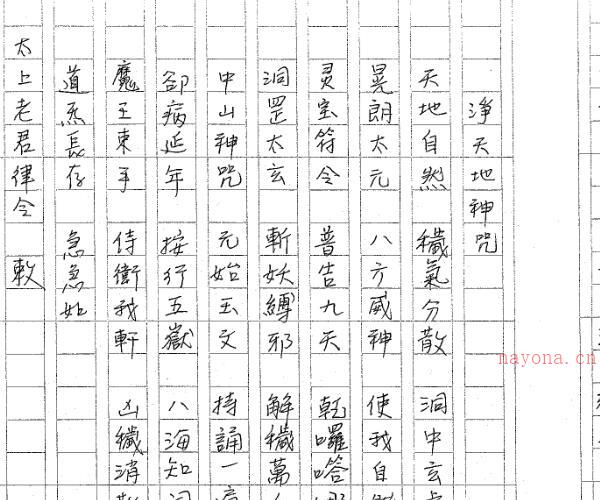 淨天地神咒
天地自然 穢氣分散 洞中玄
晃朗太元 八方威神 使我自
灵宝符令 普告九天 乾囉嗒
洞罡太玄 斬妖縛邪 解穢萬
中山神咒 元始玉文 持誦一
卻病延年 按行五嶽 八海知
魔王束手 侍衛我軒 凶穢消
道炁長存 急急如
太上老君律令 敕
nayona.cn